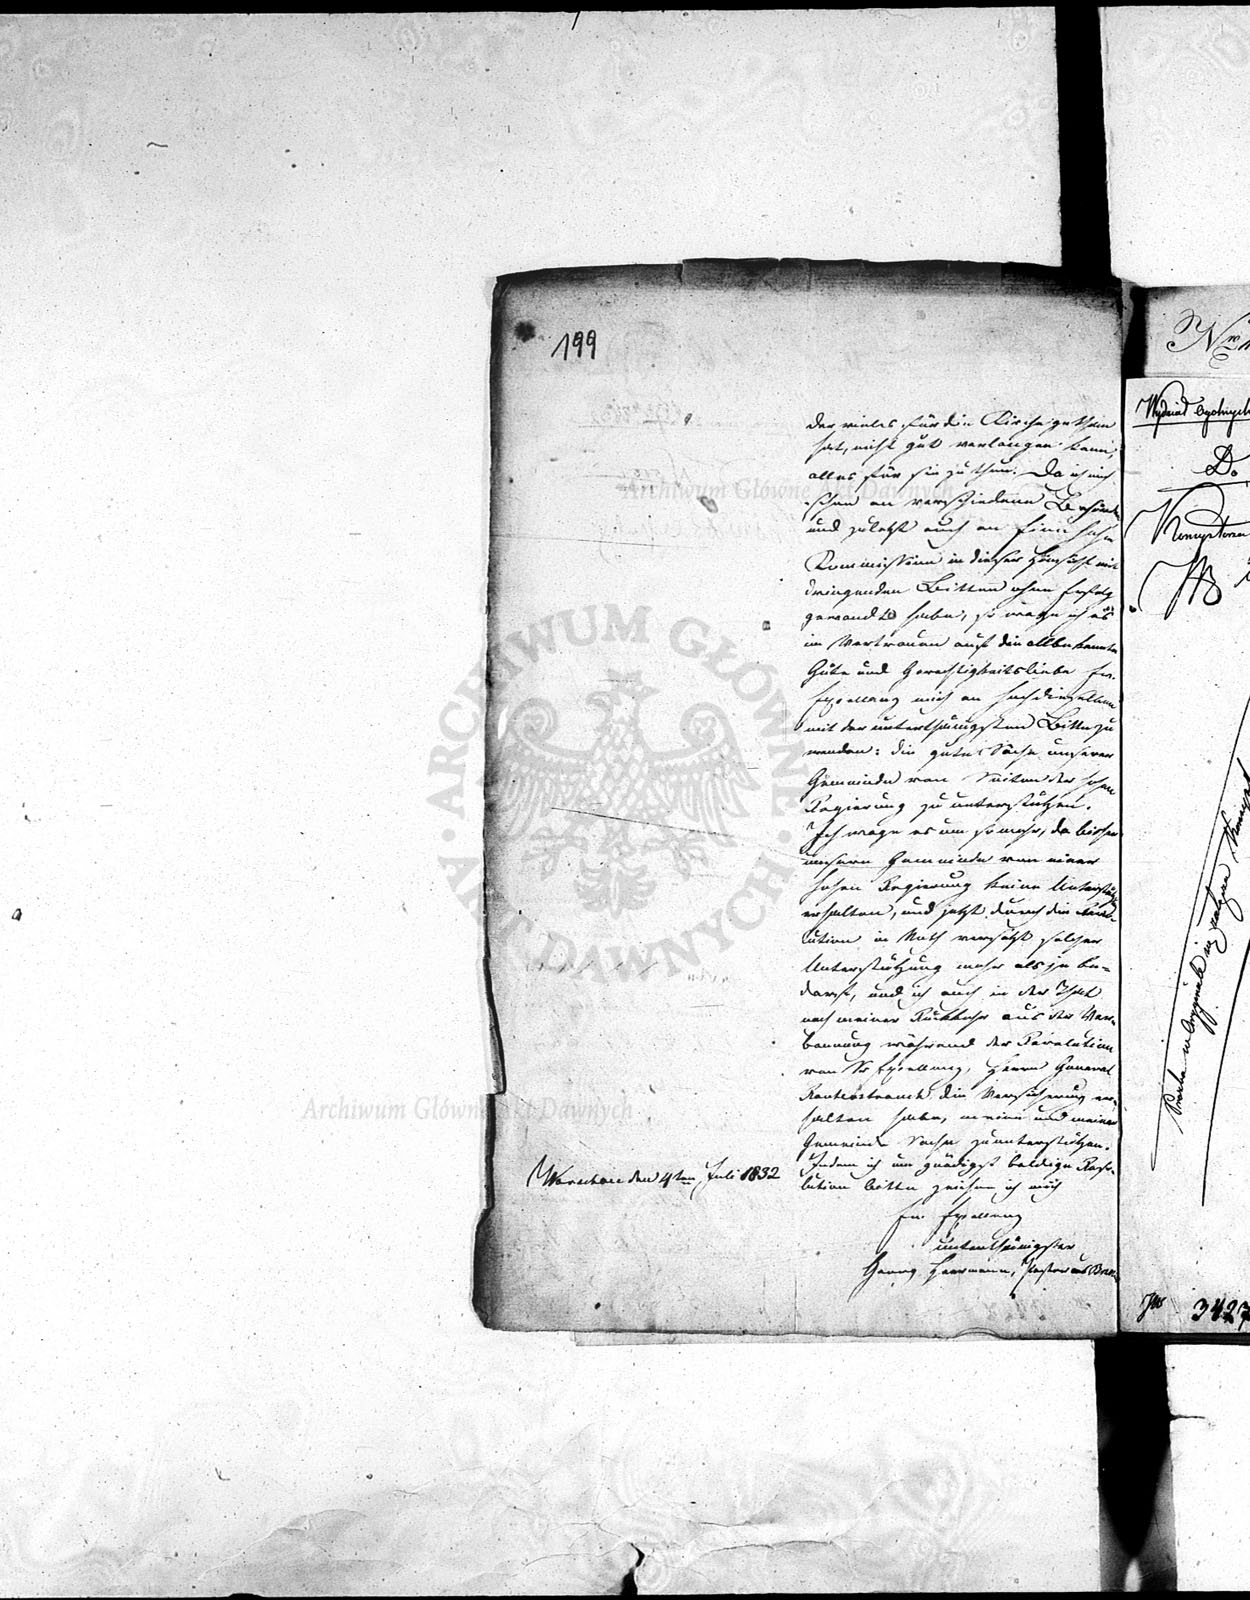 199
der vieles für die Kirche gethan
hat, nicht gut verlangen kann,
alles für sie zu thun. Da ich mich
schon an verschiedene Behörden
und zuletzt auch an eine hohe
Kommission in dieser Hinsicht mit
dringenden Bitten ohne Erfolg
gewandt habe, so wage ich es
im Vertrauen auf die allbekannte
Güte und Gerechtigkeitsliebe Ew.
Excellenz mich an Hochdieselben
mit der unterthänigsten Bitte zu
wenden: die gute Sache unserer
Gemeinde von Seiten der hohen
Regierung zu unterstützen.
Ich wage es um so mehr, da bisher
unsere Gemeinde von einer
hohen Regierung keine Unterstütz
erhalten, und jetzt durch die Revo-
lution in Noth versetzt solcher
Unterstützung mehr als je be-
darf, und ich auch in der That
nach meiner Rückkehr aus der Ver-
bannung während der Revolution
von Sr Excellenz, Herrn General
die Versicherung er-
halten habe, meine und meiner
Gemeinde Sache zu unterstützen.
Indem ich um gnädigst baldige Reso-
lution bitte zeichne ich mich
Warschau den 4ten Juli 1832
Ew. Excellenz
unterthänigster
Georg Haermann, Pastor aus
Nro
Wydział
Do
3427
ARCHIWUM GŁÓWNE AKT DAWNYCH
Archiwum Główne Akt Dawnych
Archiwum Główne Akt Dawnych